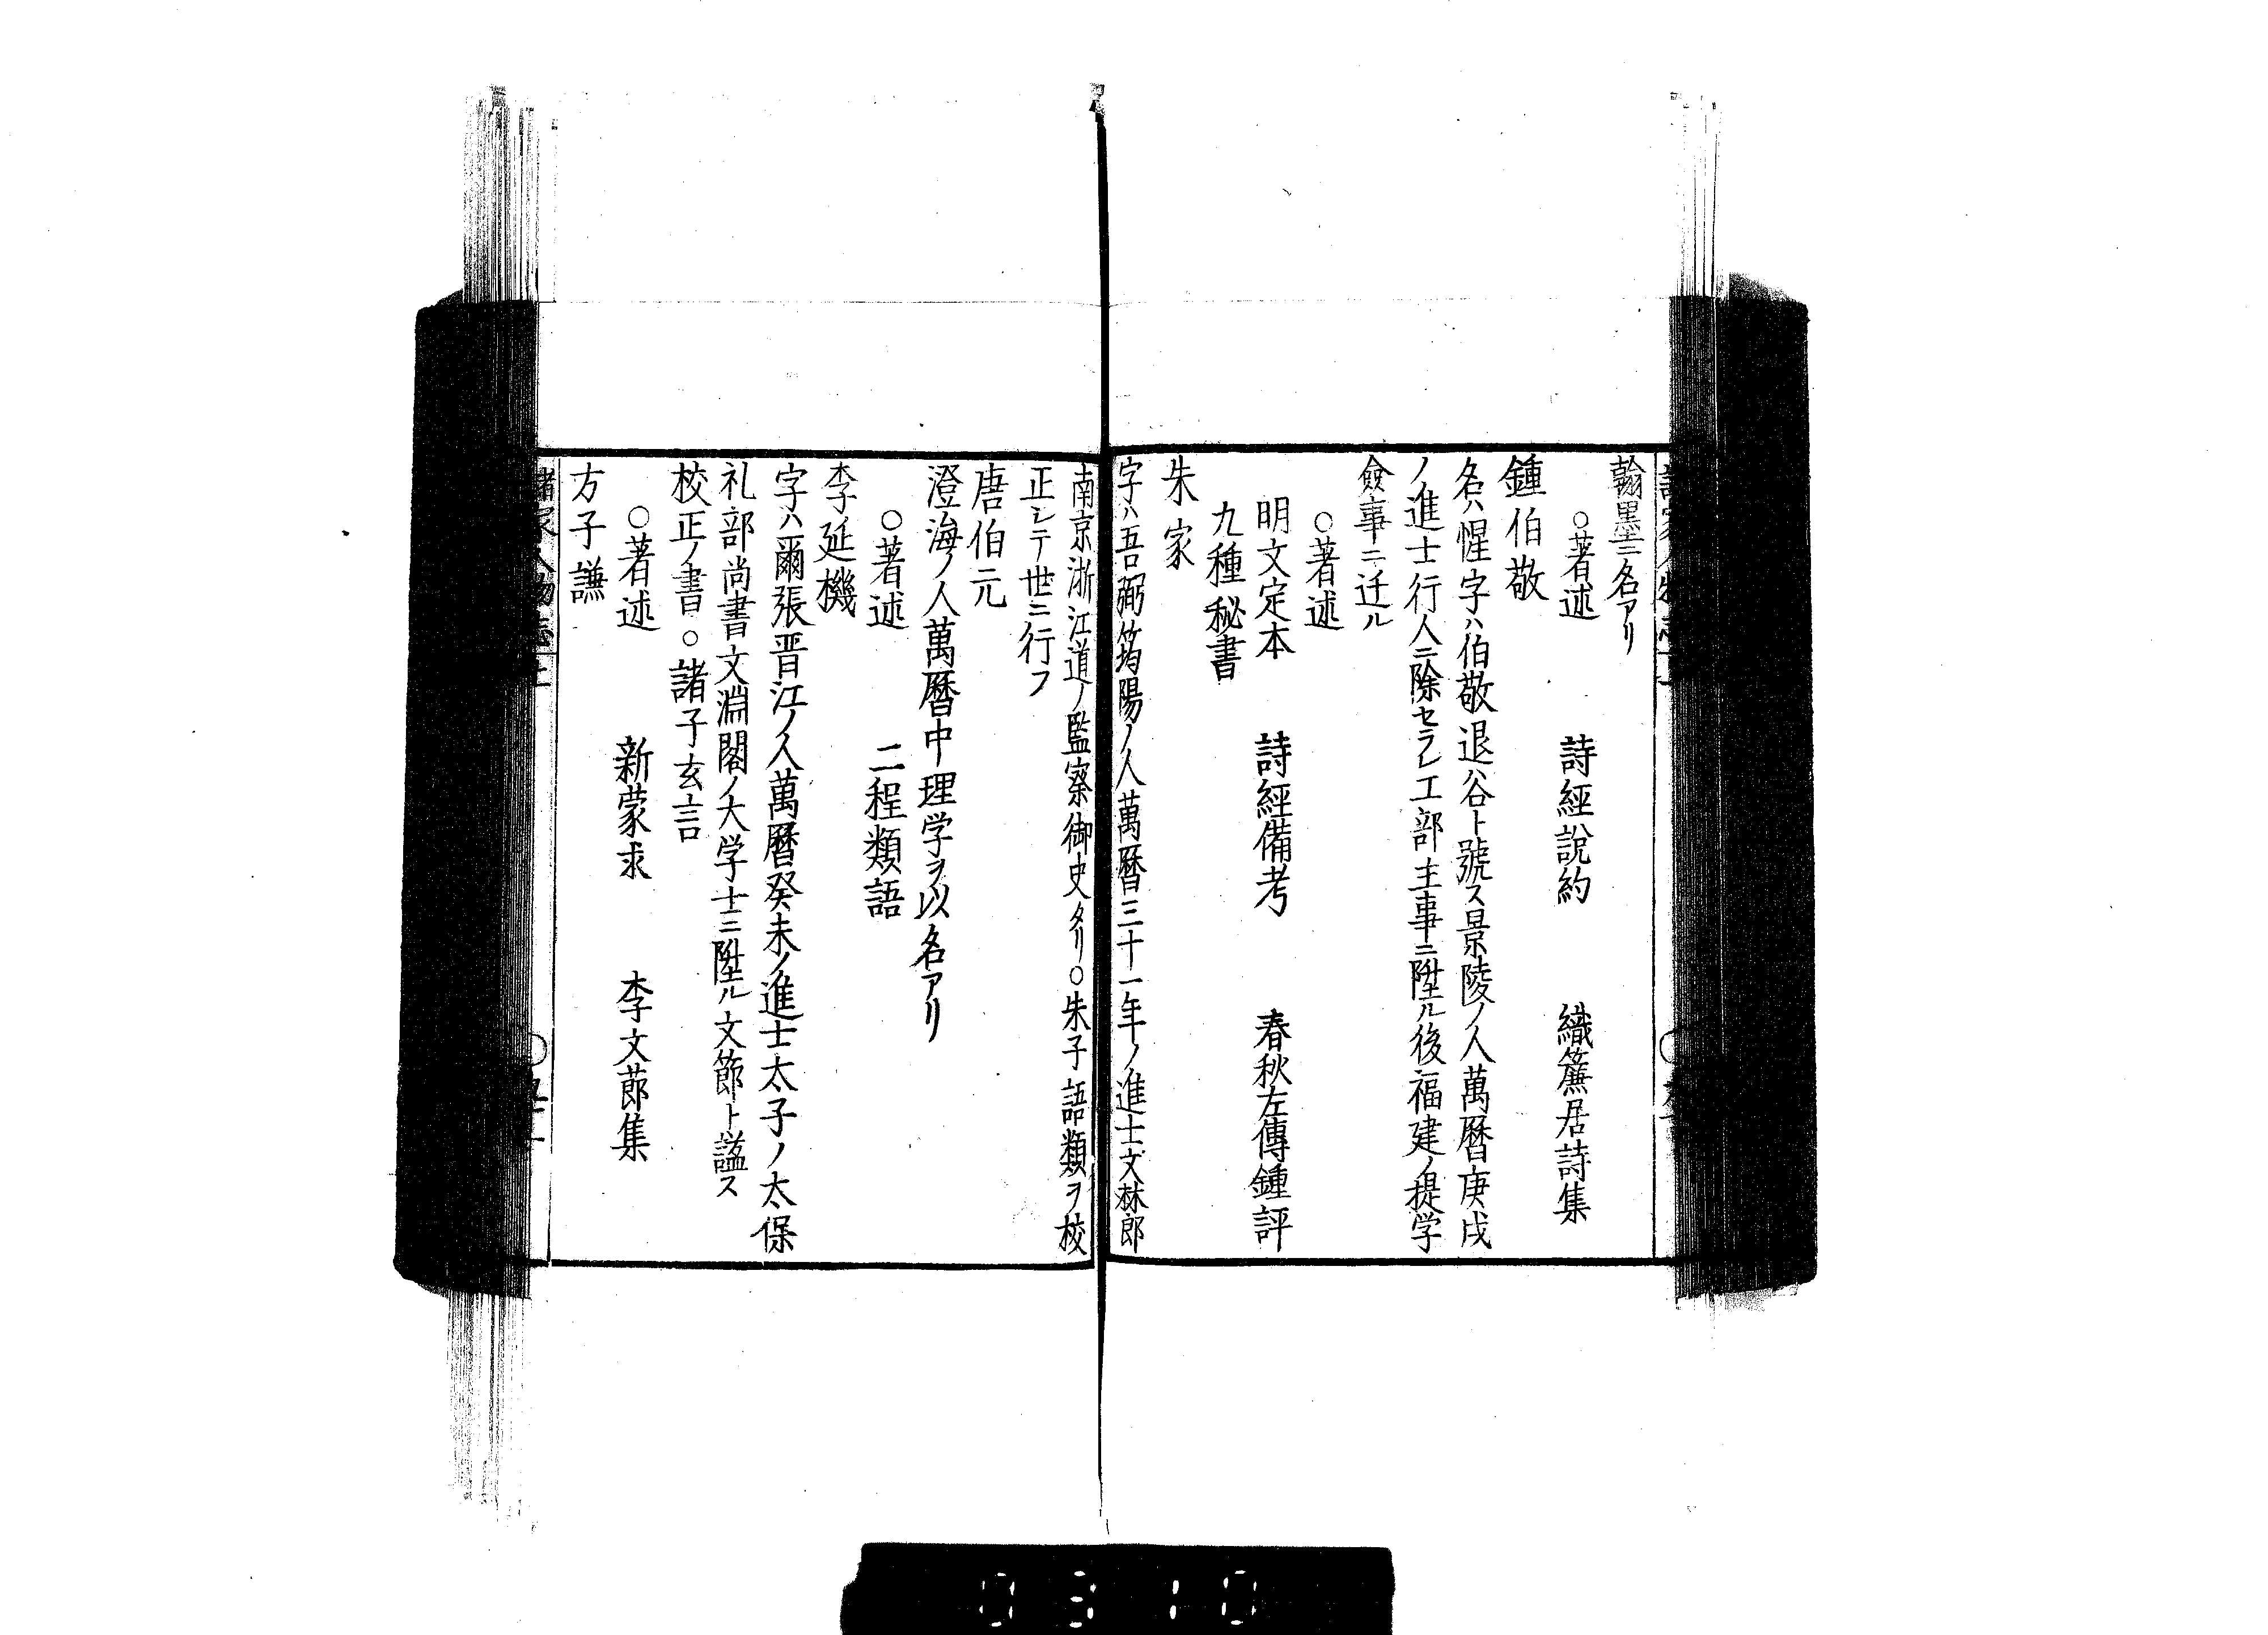 翰墨ニ名アリ
○著述　詩經說約　織簾居詩集
鍾伯敬
名ハ惺字ハ伯敬退谷ト號ス景陵ノ人萬曆庚戌
ノ進士行人ニ除セラレ工部主事ニ陞ル後福建ノ提学
僉事ニ迁ル
○著述
明文定本　詩經備考　春秋左傳鍾評
九種秘書
朱家
字ハ吾弼筠陽ノ人萬曆三十一年ノ進士文林郎
南京浙江道ノ監察御史タリ○朱子語類ヲ校
正シテ世ニ行フ
唐伯元
澄海ノ人萬曆中理学ヲ以名アリ
○著述　二程類語
李延機
字ハ爾張晋江ノ人萬曆癸未ノ進士太子ノ太保
礼部尚書文淵閣ノ大学士ニ陞ル文節ト謚ス
校正ノ書○諸子玄言
○著述　新蒙求　李文節集
方子謙
0310